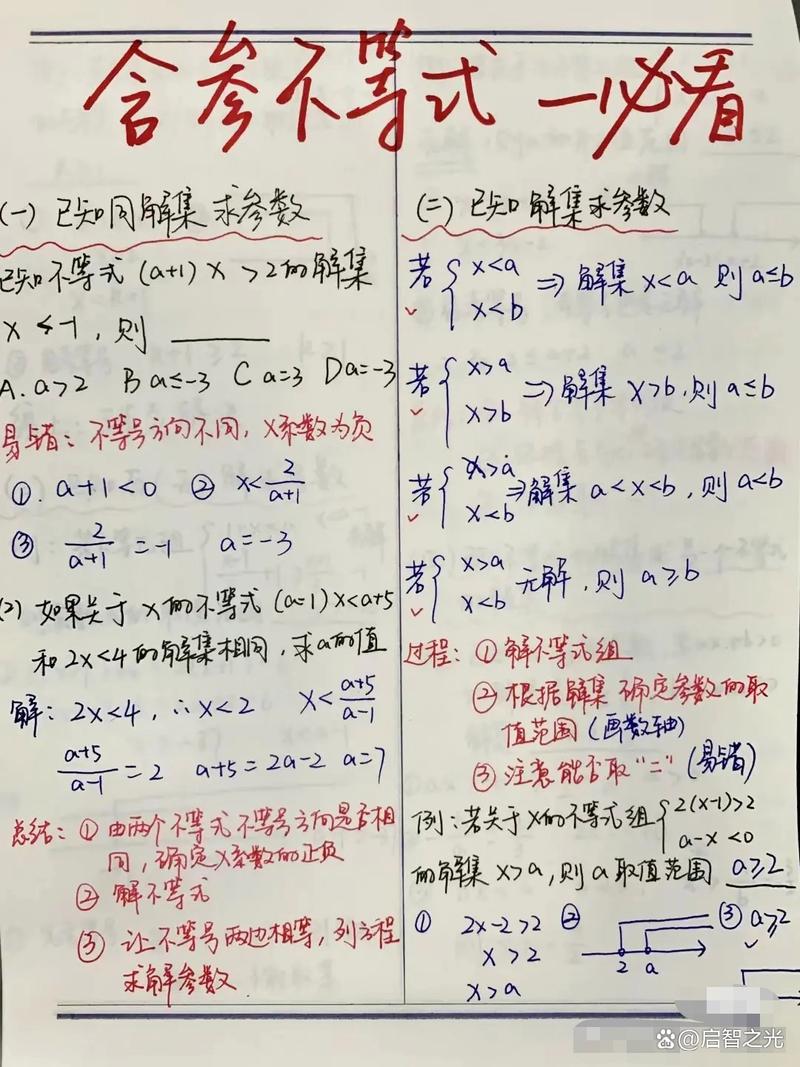 含参不等式 一必看
(一) 已知同解集求参数
已知不等式 (a+1) x >2的解集
x <-1, 则 ______
A. a>2 B a≤-3 C a=3 D a=-3
易错: 不等号方向不同, X系数为负
①. a+1<0 ② x<2/(a+1)
③ 2/(a+1) =-1 a=-3
(2) 如果关于x的不等式(a-1)x<a+5
和2x<4的解集相同, 求a的值
解: 2x<4, ∴x<2 x<(a+5)/(a-1)
(a+5)/(a-1) =2 a+5=2a-2 a=7
总结: ① 由两个不等式不等号方向是否相
同, 确定X系数的正负
② 解不等式
③ 让不等号两边相等, 列方程
求解参数
(二) 已知解集求参数
若 { x<a
x<b ⇒ 解集 x<a 则 a≤b
若 { x>a
x>b ⇒解集 x>b, 则 a≤b
若 { x>a
x<b ⇒解集 a<x<b, 则 a<b
若 { x>a
x<b 无解, 则 a≥b
过程: ① 解不等式组
② 根据解集 确定参数的取
值范围 (画数轴)
③ 注意能否取"=" (易错)
例: 若关于X的不等式组 { 2(x-1)>2
a-x <0
的解集 x>a, 则a取值范围 a≥2
① 2x-2>2 ② ③ a≥2
x>2
2 a
x>a
启智之光